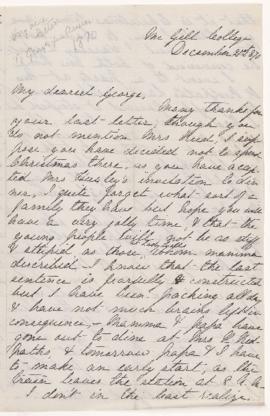 McGill College
December 21st 1870
My dearest George,
Many thanks for
your last letter, though you
do not mention Mrs I sup
pose you have decided not to spend
Christmas there, as you have accep
ted Mrs invitation to din
ner, I quite forget what sort of a
family they have but hope you will
have a very jolly time & that the
young people will be as stiff
& stupid as those whom mamma
described. I know that the last
sentence is fearfully constructed
but I have been packing all day
& have not much brains left in
consequence,- Mamma & papa have
gone out to dine at Mrs Red
paths, & tomorrow papa & I have
to make an early start, as the
train leaves the station at 8 A.M.
I don't in the least realize